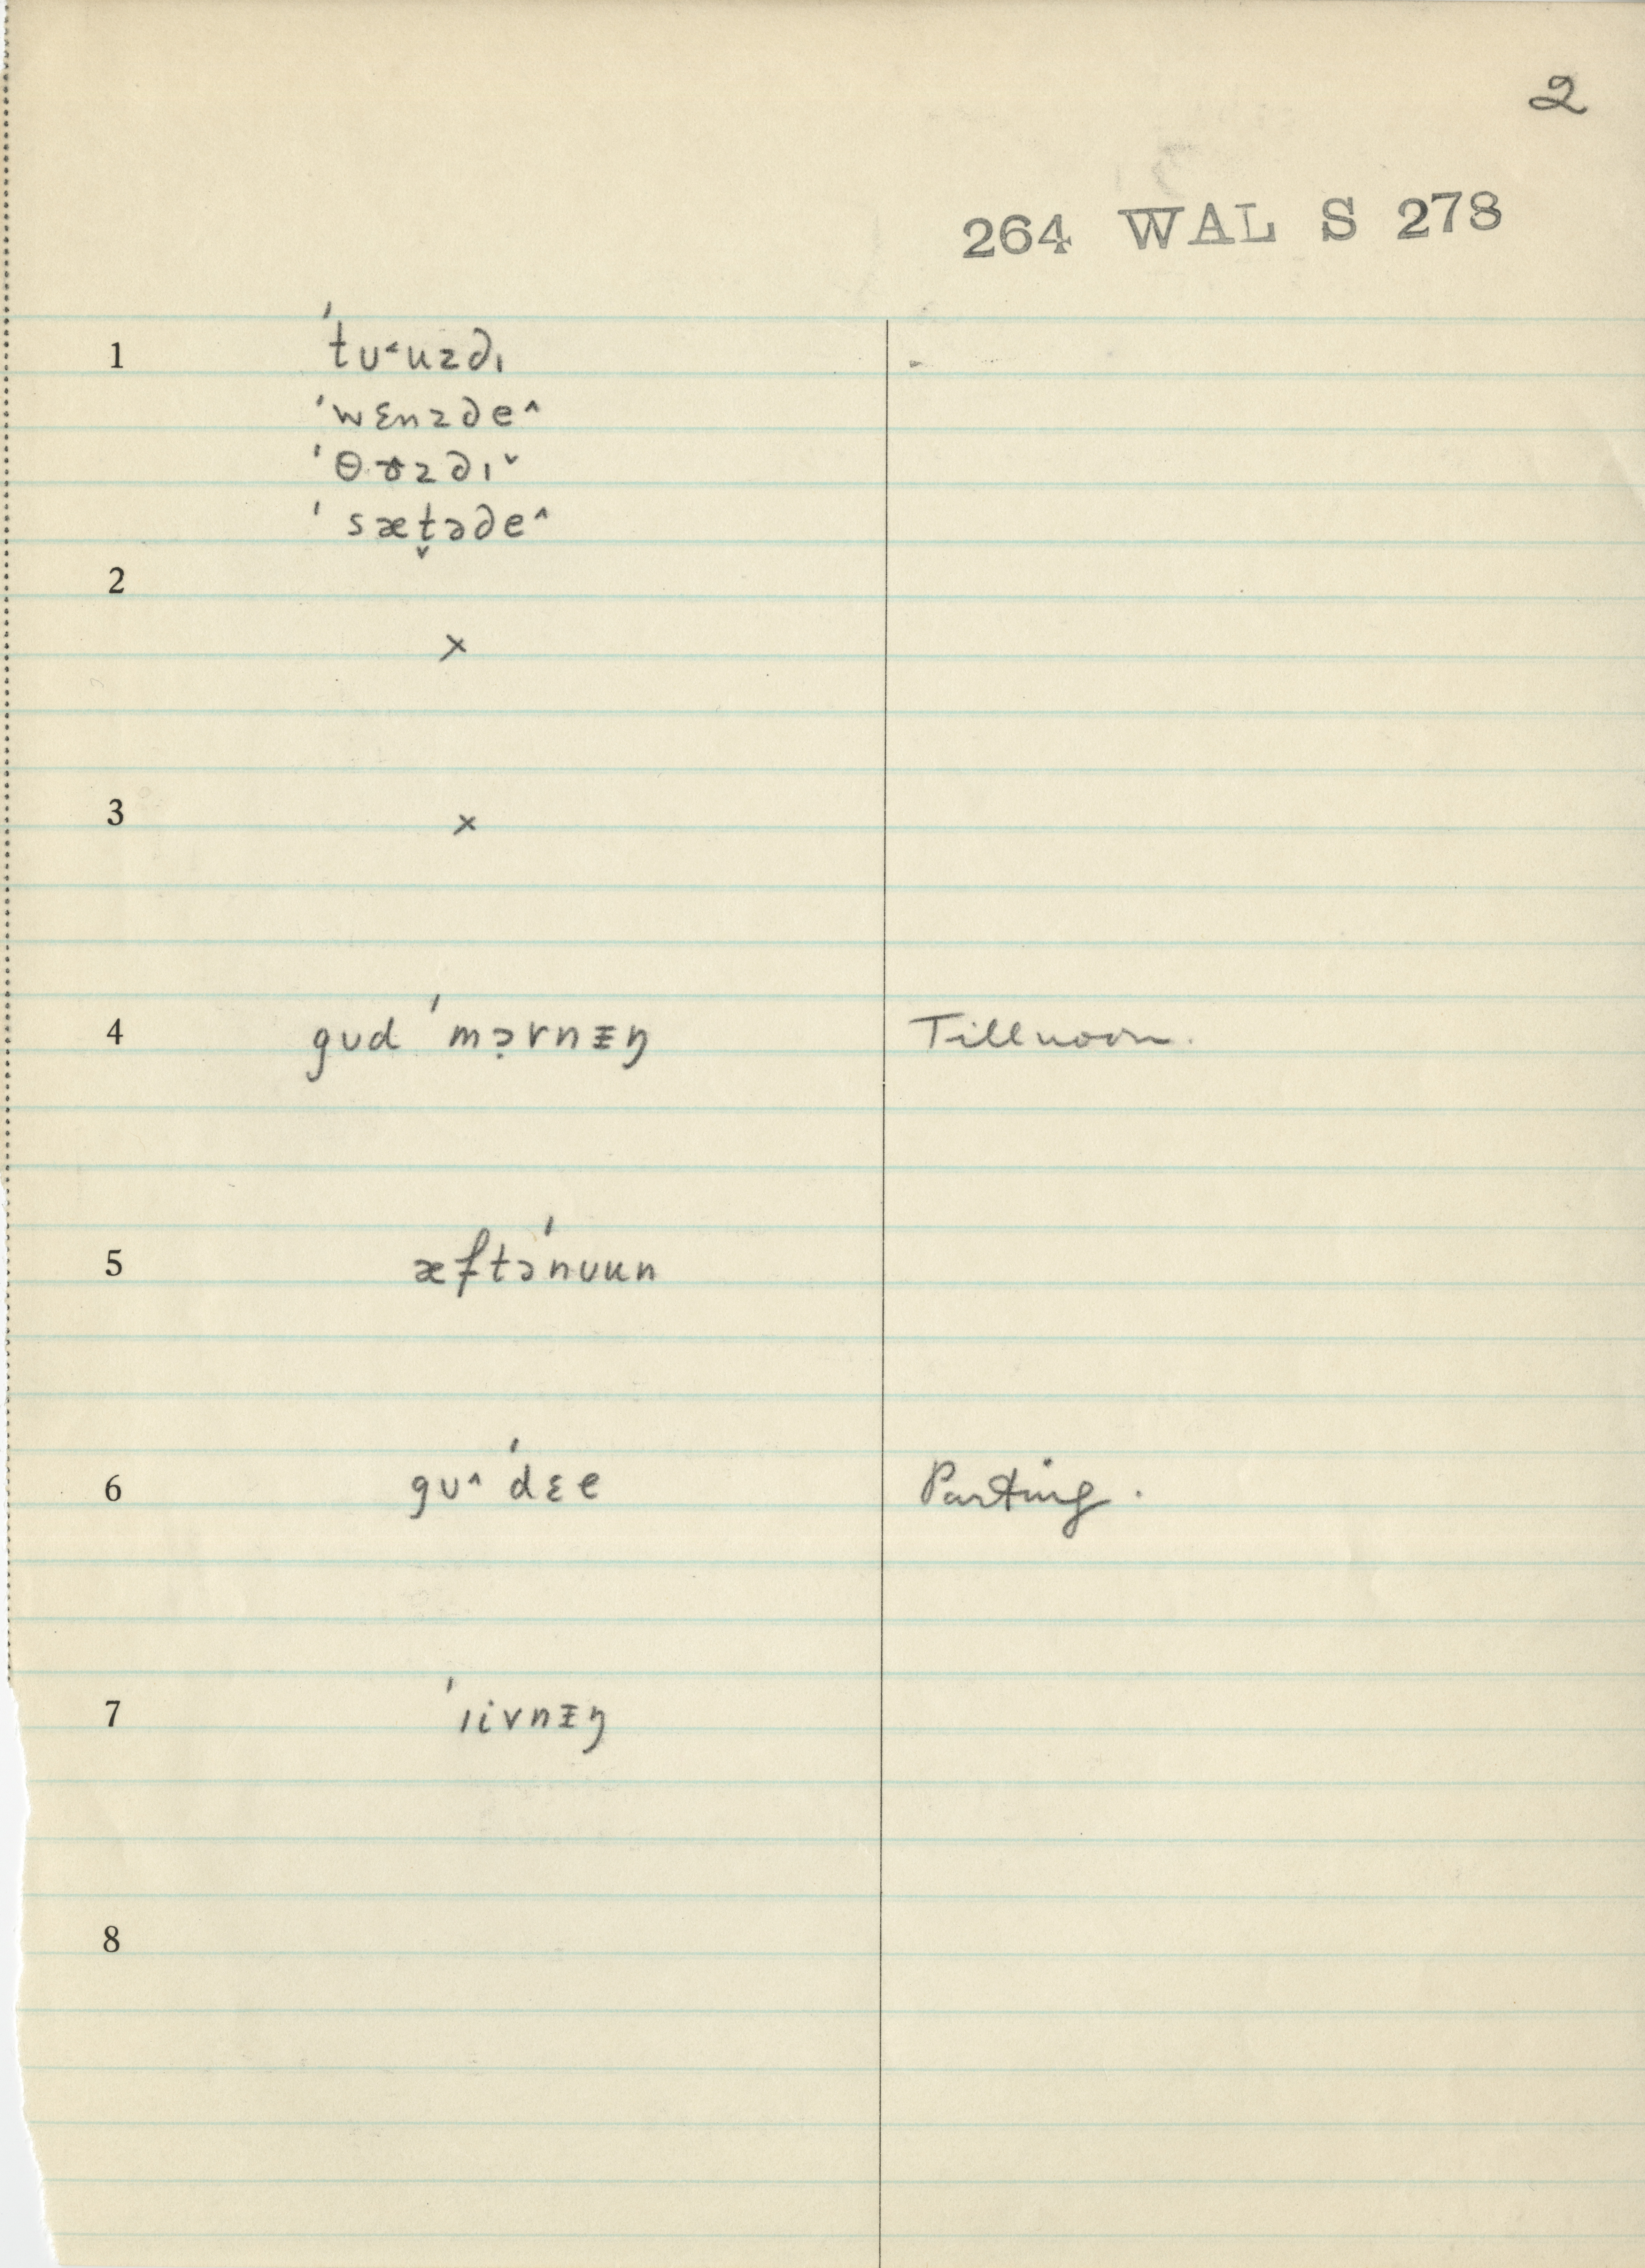 2
264 WAL S 278
1 ˈtʊ˂uzdɪ
ˈwɛnzde^
ˈθɤzdɪˇ
ˈsæt̬əde^
2
×
3
×
4 gʊd ˈmə̣rnɪŋ Till noon.
5 æftəˈnʊun
6 gʊ^ ˈdɛe Parting.
7 ˈɪivnɪŋ
8